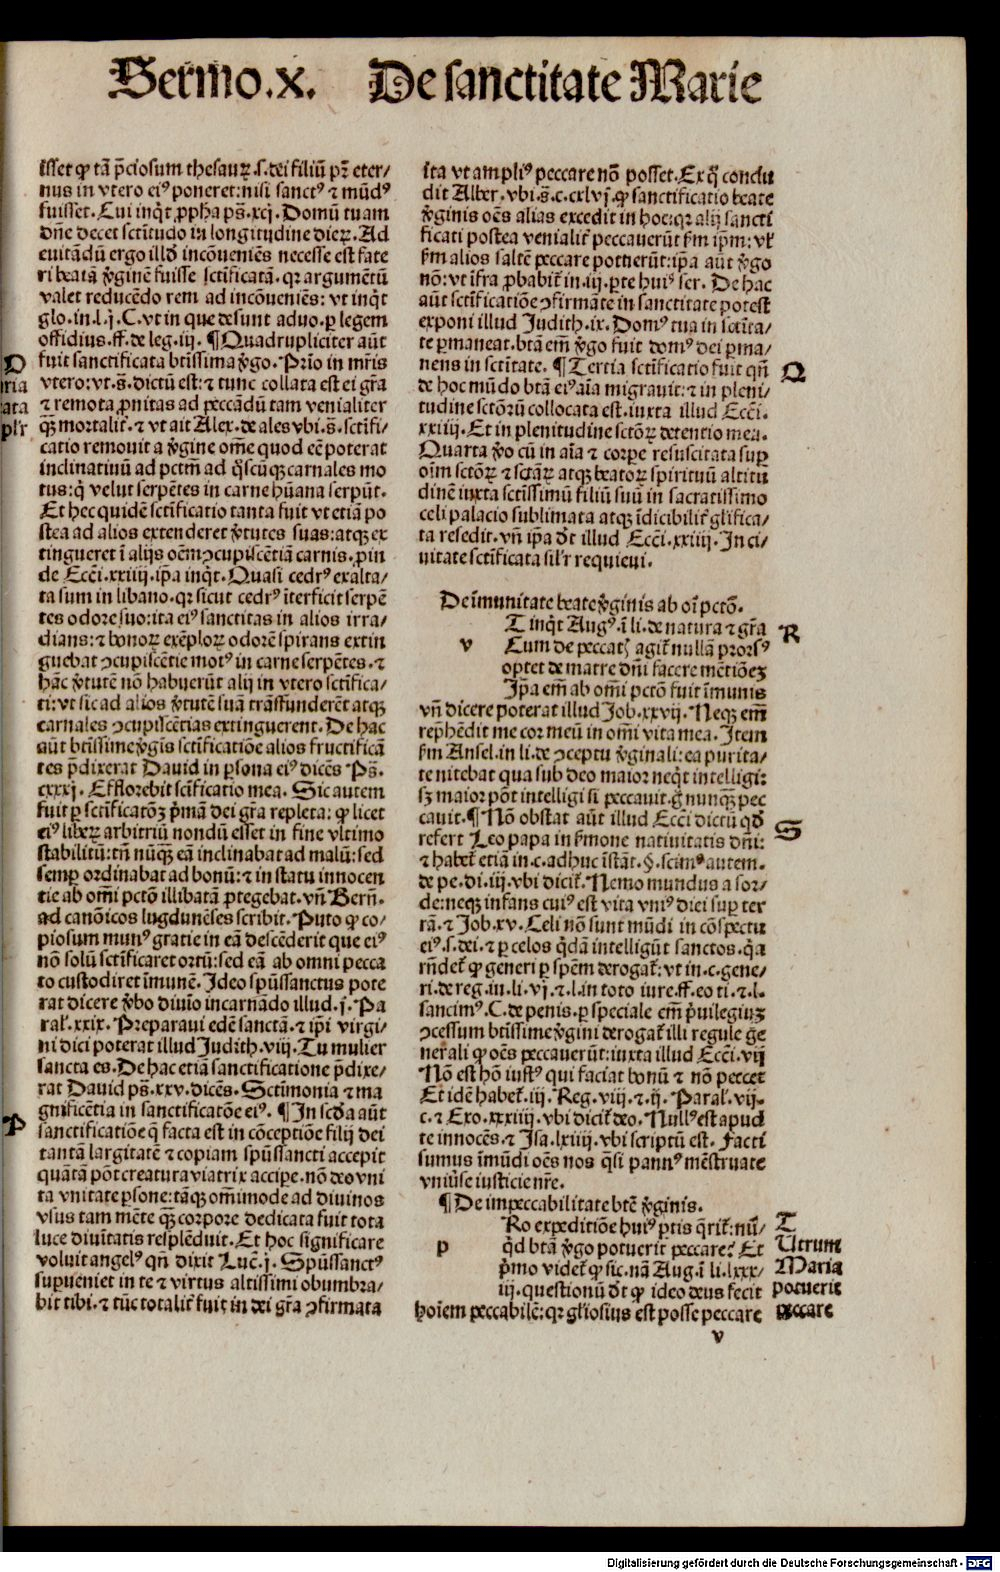 Sermo.x. De sanctitate Marie
isset ꝙ tā p̄ciosum thesauꝝ.s.dei filiū pr̄ eter/
nus in vtero eiꝰ poneret:nisi sanctꝰ ⁊ mūdꝰ
fuisset.Cui inq̇t ꝓpha ps̄.xcj.Domū tuam
dn̄e decet sctītudo in longitudine dieꝝ.Ad
euitādū ergo illḋ incōueniēs necesse est fate
ri beatā v̇ginē fuisse sctīficatā.qꝛ argumētū
valet reducēdo rem ad incōueniēs: vt inq̇t
glo.in.l.j.C.vt in que desunt aduo.ꝑ legem
offidius.ff.de leg.iij. ¶Quadrupliciter aūt
fuit sanctificata btīssima v̇go.Prīo in mr̄is
vtero:vt.s̄.dictū est:⁊ tunc collata est ei gr̄a
⁊ remota ꝓnitas ad peccādū tam venialiter
qꝫ̄ mortalit̄.⁊ vt ait Alex.de ales vbi.s̄.sctīfi/
catio remouit a v̇gine om̄e quod eē poterat
inclinatiuū ad pctm̄ ad q̇scūqꝫ carnales mo
tus:q̇ velut serpētes in carne hūana serpūt.
Et hec quidē sctīficatio tanta fuit vt etiā po
stea ad alios extenderet v̇tutes suas:atqꝫ ex
tingueret ī alijs oēm ꝯcupiscētiā carnis.ꝓin
de Eccī.xxiiij.ip̄a inq̇t.Quasi cedrꝰ exalta/
ta sum in libano.qꝛ sicut cedrꝰ īterficit serpē
tes odore suo:ita eiꝰ sanctitas in alios irra/
dians:⁊ bonoꝝ exēploꝝ odorē spirans extin
guebat ꝯcupiscētie motꝰ in carne serpētes.⁊
hāc v̇tutē nō habuerūt alij in vtero sctīfica/
ti:vt sic ad alios v̇tutē suā trāsfunderēt atqꝫ
carnales ꝯcupiscētias extinguerent.De hac
aūt btīssime v̇gīs sctīficatiōe alios fructificā
tes p̄dixerat Dauid in ꝑsona eiꝰ dicēs Ps̄.
cxxxj.Efflorebit scīficatio mea. Sic autem
fuit ꝑ sctīficatōꝫ p̓mā dei gr̄a repleta: ꝙ licet
eiꝰ libeꝝ arbitriū nondū esset in fine vltimo
stabilitū:tn̄ nūqꝫ̄ eā inclinabat ad malū:sed
semꝑ ordinabat ad bonū:⁊ in statu innocen
tie ab om̄i pctō illibatā ꝓtegebat.vn̄ Bern̄.
ad canōicos lugdunēses scribit.Puto ꝙ co/
piosum munꝰ gratie in eā descēderit que eiꝰ
nō solū sctīficaret ortū:sed eā ab omni pecca
to custodiret īmunē.Ideo spūssanctus pote
rat dicere v̇bo diuīo incarnādo illud.j.Pa
ral̄.xxix.Preparaui edē sanctā.⁊ ip̄i virgi/
ni dici poterat illud Judith.viij.Tu mulier
sancta es.De hac etiā sanctificatione p̄dixe/
rat Dauid ps̄.xxv.dicēs.Sctīmonia ⁊ ma
gnificētia in sanctificatōe eiꝰ.¶In scḋa aūt
sanctificatiōe q̄ facta est in cōceptiōe filij dei
tantā largitatē ⁊ copiam spūssancti accepit
quātā pōt creatura viatrix accipe.nō deo vni
ta vnitate ꝑsone:tāqꝫ om̄imode ad diuinos
vsus tam mēte qꝫ̄ corpore dedicata fuit tota
luce diuītatis resplēduit.Et hoc significare
voluit angelꝰ qn̄ dixit Luc̄.j.Spūssanctꝰ
suꝑueniet in te ⁊ virtus altissimi obumbra/
bit tibi.⁊ tūc totalit̄ fuit in dei gr̄a ꝯfirmata
ria
ata
plr̄
P
ita vt ampliꝰ peccare nō posset.Ex q̄ conclu
dit Alber.vbi.s̄.c.cxlvj.ꝙ sanctificatio beate
v̇ginis oēs alias excedit in hoc:qꝛ alij sancti
ficati postea venialit̄ peccauerūt ẜm ip̄m:vl̄
ẜm alios saltē peccare potuerūt:ip̄a aūt v̇go
nō:vt īfra ꝓbabit̄ in.iij.ꝑte huiꝰ ser. De hac
aūt sctīficatiōe ꝯfirmāte in sanctitate potest
exponi illud Judith.ix.Domꝰ tua in sctīta/
te ꝑmaneat.btā em̄ v̇go fuit domꝰ dei ꝑma/
nens in sctītate. ¶Tertia sctīficatio fuit qn̄
de hoc mūdo btā eiꝰ aīa migrauit:⁊ in pleni/
tudine sctōrū collocata est.iuxta illud Eccī.
xxiiij.Et in plenitudine sctōꝝ detentio mea.
Quarta v̇o cū in aīa ⁊ corꝑe resuscitata suꝑ
oīm sctōꝝ ⁊ sctāꝝ atqꝫ beatoꝝ spirituū altitu
dinē iuxta sctīssimū filiū suū in sacratissimo
celi palacio sublimata atqꝫ īdicibilit̄ gl̄ifica/
ta resedit.vn̄ ip̄a d̄t illud Eccī.xxiiij.In ci/
uitate sctīficata sil̄r requieui.
De īmunitate beate v̇ginis ab oī pctō.
v T inq̇t Augꝰ.ī li.de natura ⁊ gr̄a
Cum de peccatꝭ agit̄ nullā prorsꝰ
optet de matre dn̄i facere mētiōeꝫ
Ip̄a em̄ ab om̄i pctō fuit īmunis
vn̄ dicere poterat illud Job.xxvij.Neqꝫ em̄
rep̄hēdit me cor meū in om̄i vita mea.Item
ẜm Ansel.in li.de ꝯceptu v̇ginali:ea purita/
te nitebat qua sub deo maior neq̇t intelligi:
sꝫ maior pōt intelligi si peccauit.g̊ nunqꝫ̄ pec
cauit.¶Nō obstat aūt illud Eccī dictū qḋ
refert Leo papa in ẜmone natiuitatis dn̄i:
⁊ habet̄ etiā in.c.adhuc īstāt.§.scimꝰ autem.
de pe.di.iij.vbi dicit̄.Nemo mundus a sor/
de:neqꝫ infans cuiꝰ est vita vniꝰ diei suꝑ ter
rā.⁊ Job.xv.Celi nō sunt mūdi in cōspectu
eiꝰ.s.dei.⁊ ꝑ celos q̇dā intelligūt sanctos.q̇a
rn̄det̄ ꝙ generi ꝑ spēm derogat̄:vt in.c.gene/
ri.de reg.iu.li.vj.⁊.l.in toto iure.ff.eo ti.⁊.l.
sancimꝰ.C.de penis.ꝑ speciale em̄ p̓uilegiuꝫ
ꝯcessum btīssime v̇gini derogat̄ illi regule ge
nerali ꝙ oēs peccauerūt:iuxta illud Eccī.vij
Nō est hō iustꝰ qui faciat bonū ⁊ nō peccet
Et idē habet̄.iij.Reg.viij.⁊.ij.Paral.vij.
c.⁊ Exo.xxxiiij.vbi dicit̄ deo.Nullꝰ est apud
te innocēs.⁊ Isa.lxiiij.vbi scriptū est.Facti
sumus īmūdi oēs nos q̇si pannꝰ mēstruate
vniūse iusticie nr̄e.
¶De impeccabilitate btē v̇ginis.
p Ro expeditiōe huiꝰ ꝑtis q̄rit̄:nū/
q̇d btā v̇go potuerit peccare? Et
p̓mo videt̄ ꝙ sic.nā Aug.ī li.lxxx/
iij.questionū d̄t ꝙ ideo deus fecit
hoīem peccabilē:qꝛ gl̄iosius est posse peccare
v
Q
R
S
T
Utrum
Maria
potuerit
peccare
Digitalisierung gefördert durch die Deutsche Forschungsgemeinschaft - DFG